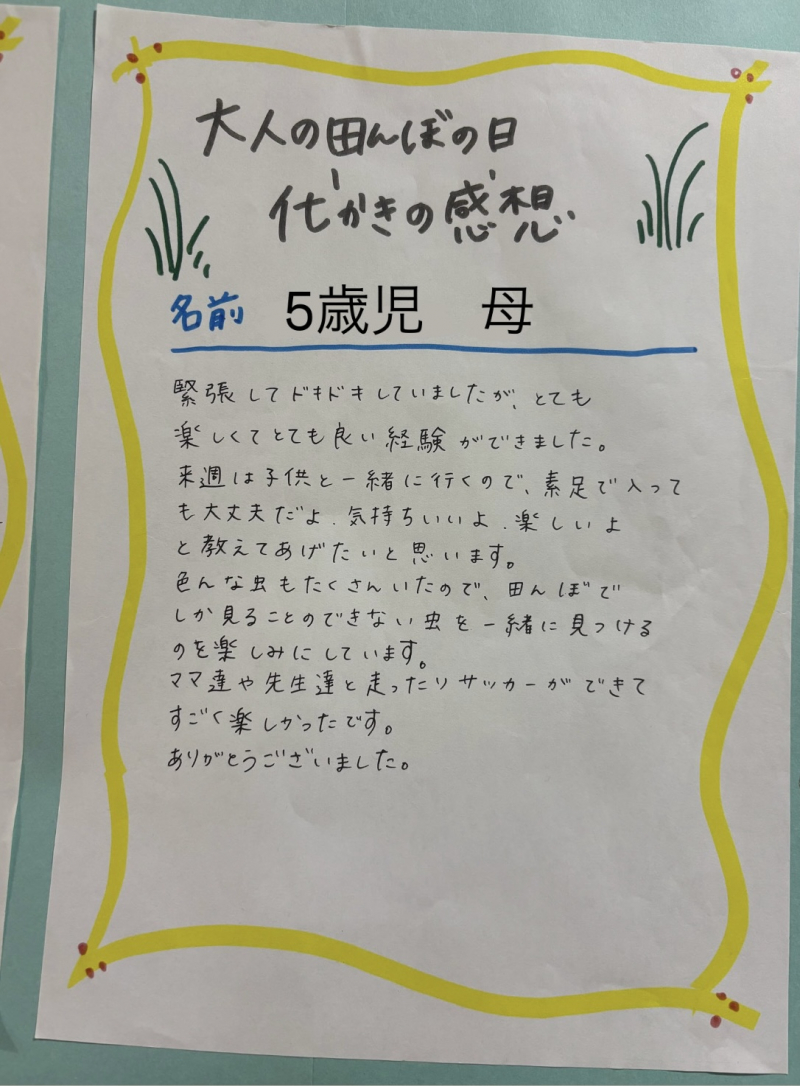 大人の田んぼの日
代かきの感想
名前 5歳児 母
緊張してドキドキしていましたが、とても
楽しくてとても良い経験ができました。
来週は子供と一緒に行くので、素足で入って
も大丈夫だよ、気持ちいいよ、楽しいよ
と教えてあげたいと思います。
色んな虫もたくさんいたので、田んぼで
しか見ることのできない虫を一緒に見つける
のを楽しみにしています。
ママ達や先生達と走ったりサッカーができて
すごく楽しかったです。
ありがとうございました。